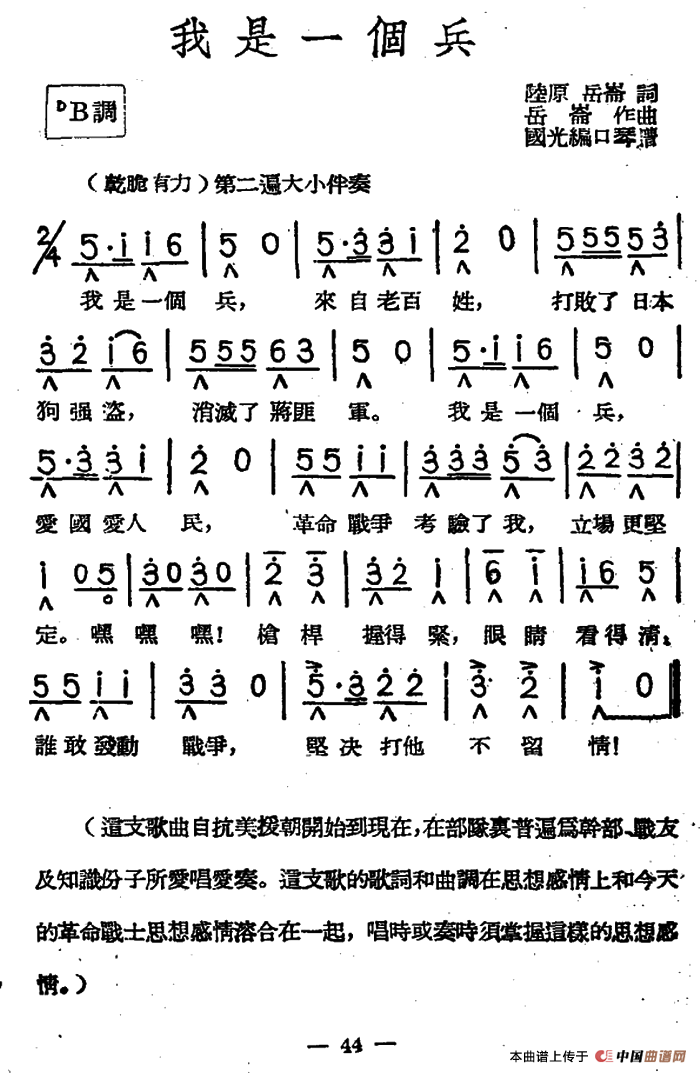 我是一個兵
ᴰB調
陸原 岳崙 詞
岳崙 作曲
國光編口琴譜
（乾脆有力）第二遍大小伴奏
2/4 5·i i6 | 5 0 | 5·3 3i | 2 0 | 555 53
我是一個 兵， 來自老百 姓， 打敗了日本
3 2 i6 | 555 63 | 5 0 | 5·i i6 | 5 0
狗强盜， 消滅了蔣匪 軍。 我是一個 兵，
5·3 3i | 2 0 | 55 ii | 333 53 | 22 32
愛國愛人 民， 革命戰爭 考驗了我， 立場更堅
i 05 | 30 30 | 2 3 | 32 i | 6 i | i6 5
定。嘿嘿嘿！槍桿 握得緊，眼睛 看得清，
55 ii | 33 0 | 5·3 22 | 3 2 | i 0
誰敢發動 戰爭， 堅决打他 不留 情！
（這支歌曲自抗美援朝開始到現在，在部隊裏普遍爲幹部、戰友
及知識份子所愛唱愛奏。這支歌的歌詞和曲調在思想感情上和今天
的革命戰士思想感情溶合在一起，唱時或奏時須掌握這樣的思想感
情。）
— 44 —
本曲谱上传于 中国曲谱网